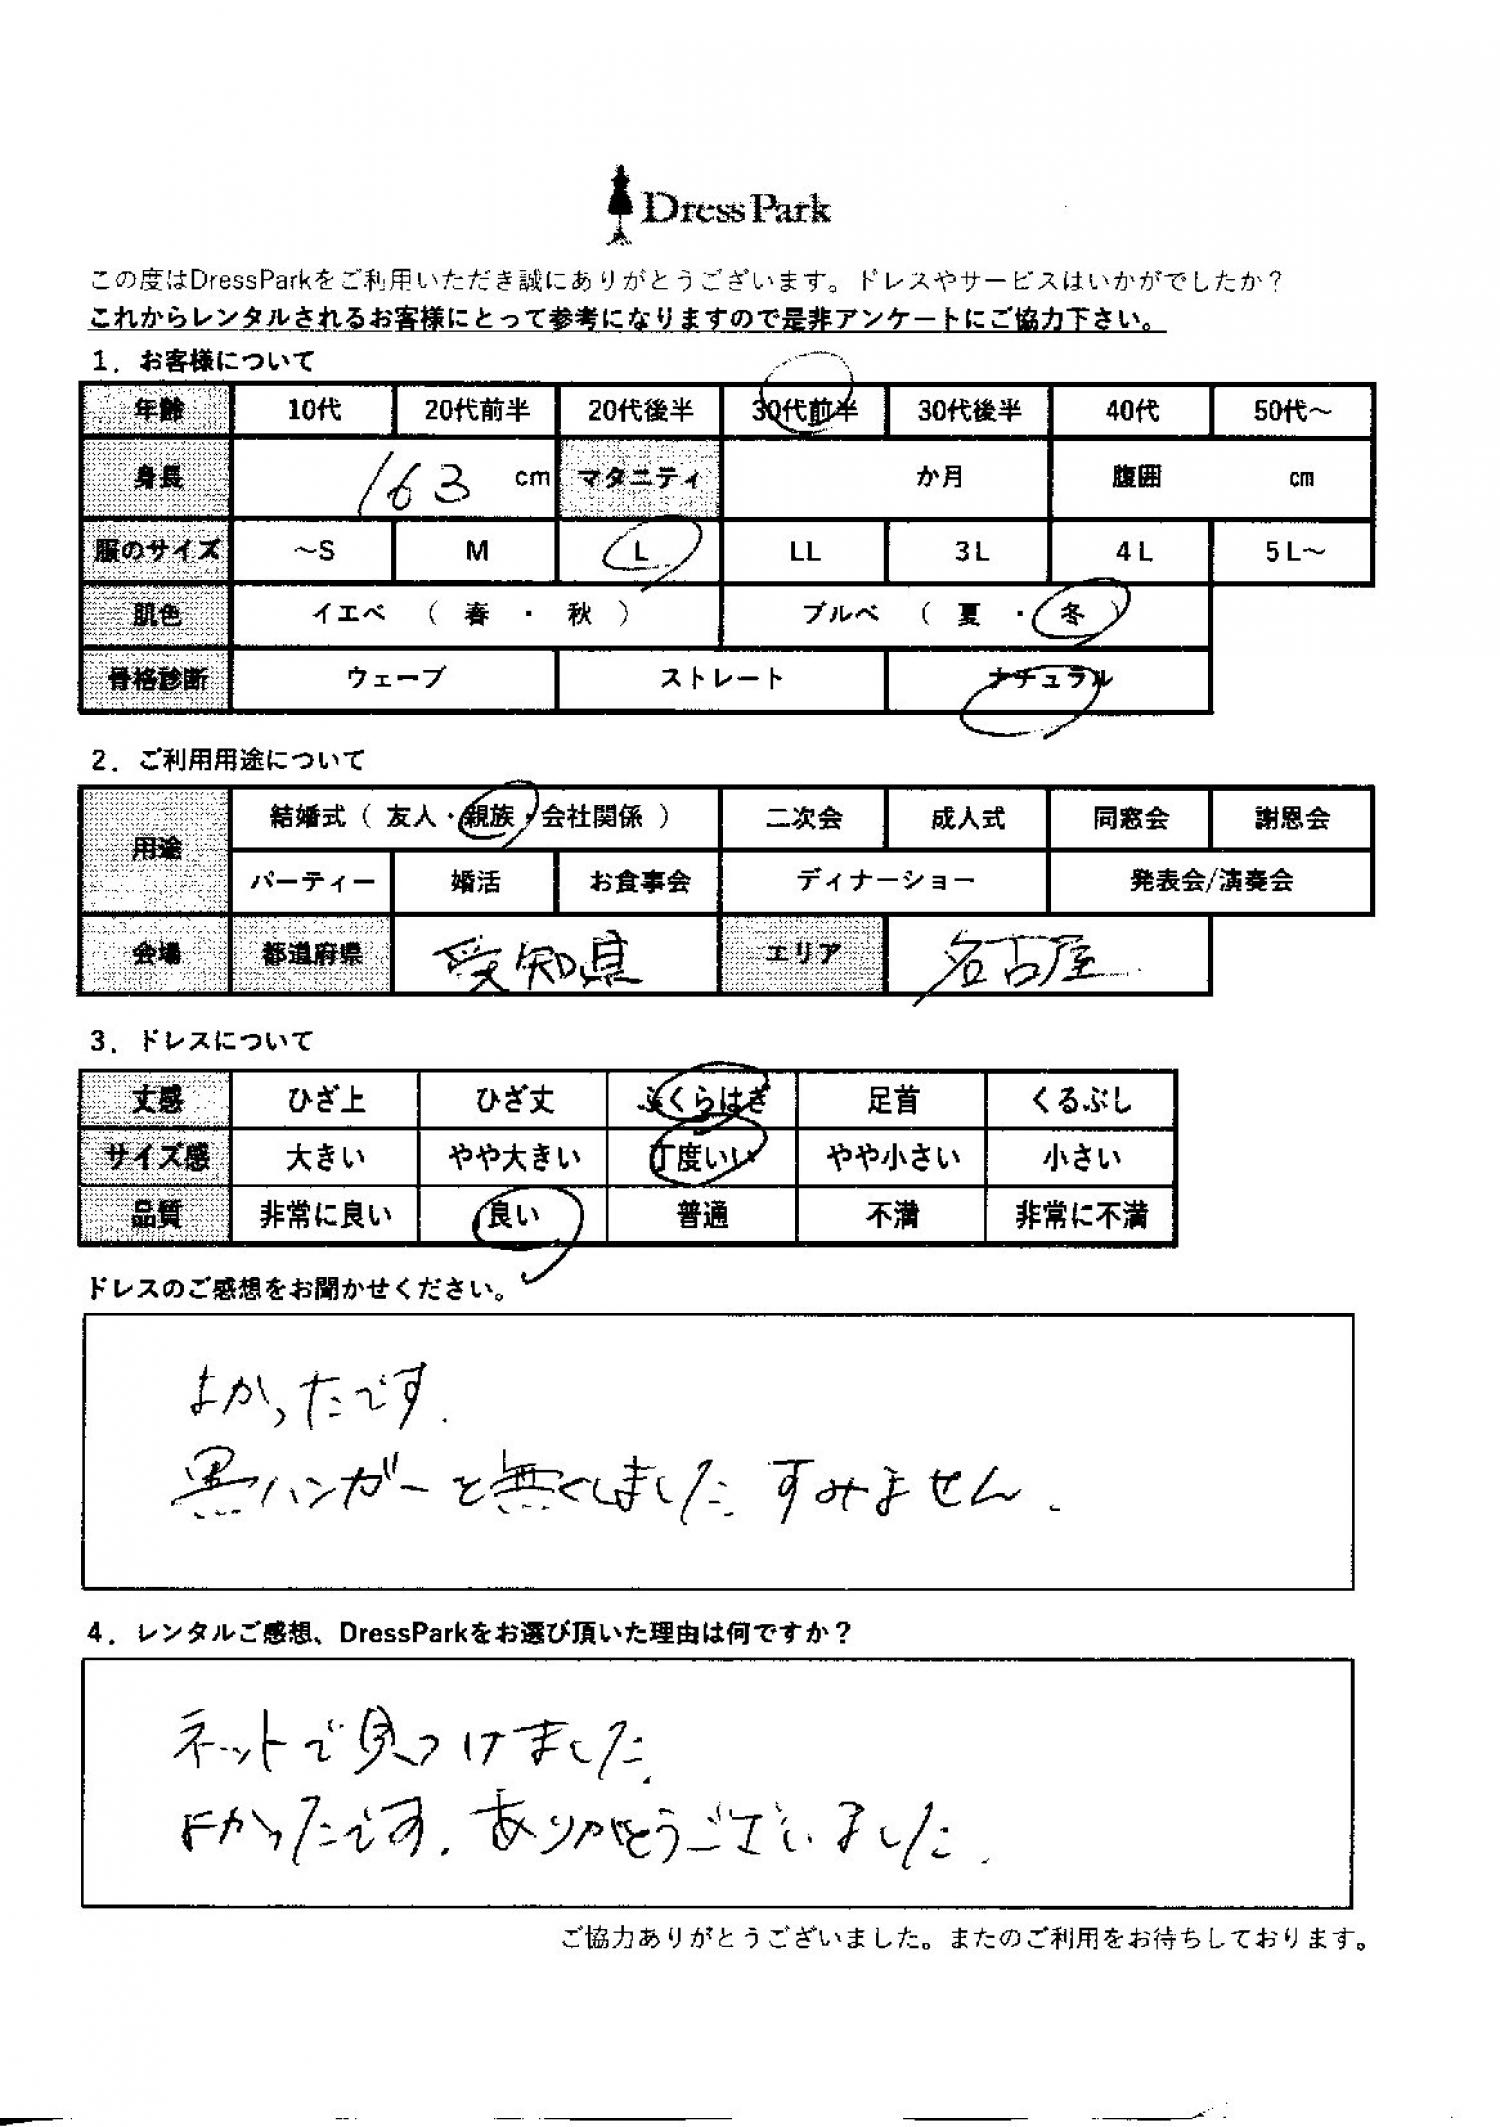 DressPark
この度はDressParkをご利用いただき誠にありがとうございます。ドレスやサービスはいかがでしたか？
これからレンタルされるお客様にとって参考になりますので是非アンケートにご協力下さい。
1．お客様について
年齢 10代 20代前半 20代後半 30代前半 30代後半 40代 50代～
身長 163 cm マタニティ か月 腹囲 cm
服のサイズ ～S M L LL 3L 4L 5L～
肌色 イエベ （ 春 ・ 秋 ） ブルベ （ 夏 ・ 冬 ）
骨格診断 ウェーブ ストレート ナチュラル
2．ご利用用途について
用途 結婚式（ 友人・親族・会社関係 ） 二次会 成人式 同窓会 謝恩会
パーティー 婚活 お食事会 ディナーショー 発表会/演奏会
会場 都道府県 愛知県 エリア 名古屋
3．ドレスについて
丈感 ひざ上 ひざ丈 ふくらはぎ 足首 くるぶし
サイズ感 大きい やや大きい 丁度いい やや小さい 小さい
品質 非常に良い 良い 普通 不満 非常に不満
ドレスのご感想をお聞かせください。
よかったです.
黒ハンガーを無くしました すみません.
4．レンタルご感想、DressParkをお選び頂いた理由は何ですか？
ネットで見つけました.
よかったです. ありがとうございました.
ご協力ありがとうございました。またのご利用をお待ちしております。